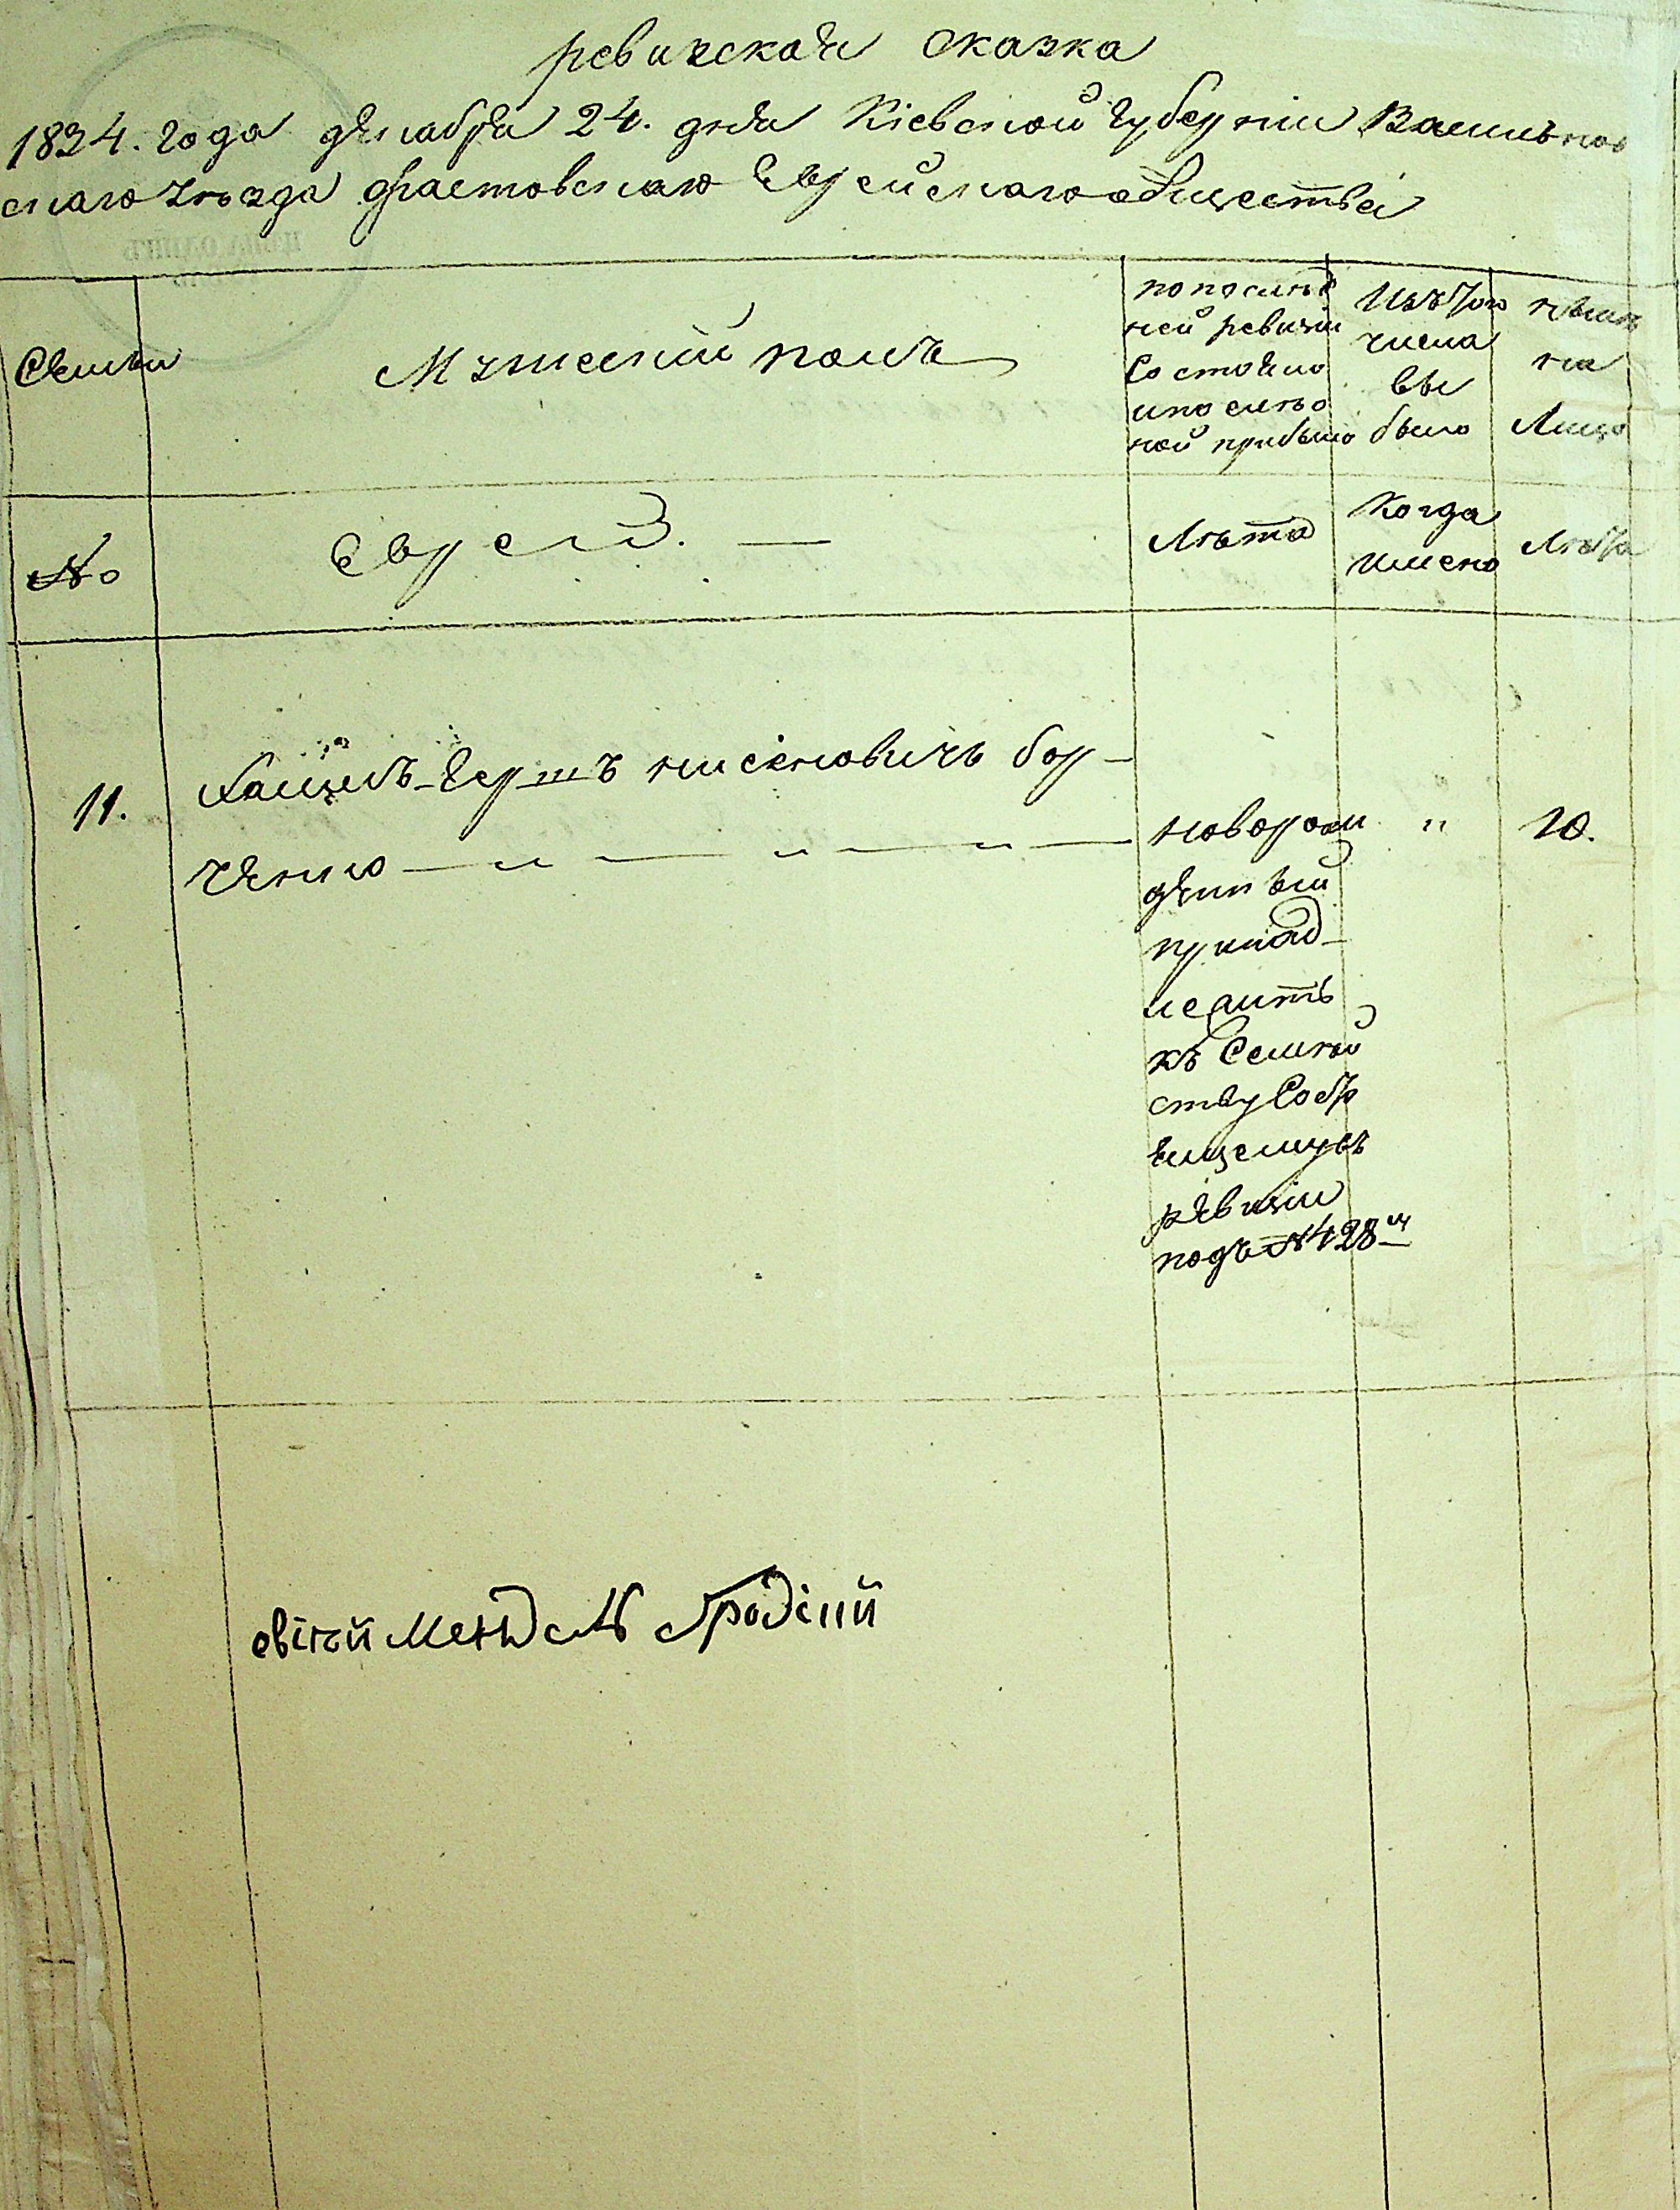 ревизская сказка
1834. года декабря 24. дня Кіевской губерніи Васильков
скаго уѣзда фастовскаго Еврейскаго общества
Семьи
Мужеский полъ
по послѣд
ней ревизіи
Состояло
и после о
ной прибыло
Изъ того
числа
вы
было
нынѣ
на
Лицо
№
Евреи. —
Лѣта
Когда
имено
Лѣта
11.
Гершъ нисеновичъ бор-
ченко — " — " — " —
новорож
денный
принад-
лежитъ
къ Семей
ству Собр
ревизіи
подъ № 428
"
10.
Мендель